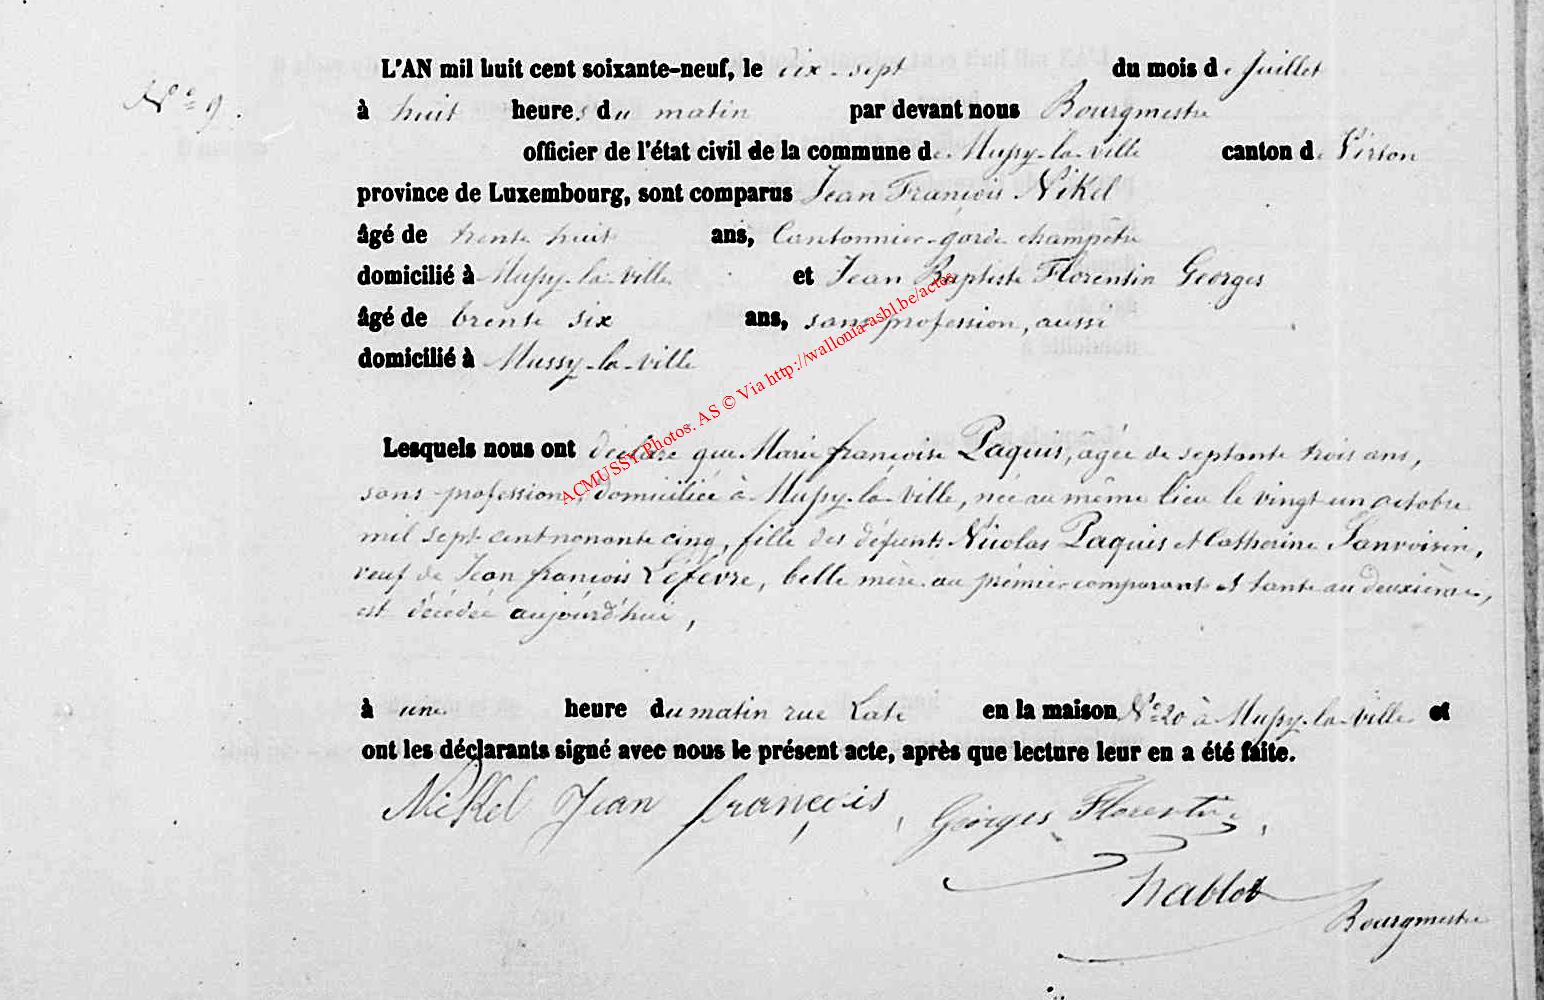 N° 9.
L'AN mil huit cent soixante-neuf, le dix-sept du mois de Juillet
à huit heures du matin par devant nous Bourgmestre
officier de l'état civil de la commune de Mussy-la-ville canton de Virton
province de Luxembourg, sont comparus Jean François Nikel
âgé de trente huit ans, Cantonnier-garde champêtre
domicilié à Mussy-la-ville et Jean Baptiste Florentin Georges
âgé de trente six ans, sans profession, aussi
domicilié à Mussy-la-ville
Lesquels nous ont déclaré que Marie françoise Paquis, agée de septante trois ans,
sans profession, domiciliée à Mussy-la-ville, née au même lieu le vingt-un octobre
mil sept cent nonante cinq, fille des défunts Nicolas Paquis et Catherine Sanvoisin,
veuf de Jean françois Lefevre, belle mère au prémier comparant et tante au deuxième,
est décédée aujourd'hui,
à une heure du matin rue Late en la maison N° 20 à Mussy-la-ville et
ont les déclarants signé avec nous le présent acte, après que lecture leur en a été faite.
Nikel Jean françois, Georges Florentin,
Bourgmestre
ACMUSSY Photos. AS © Via http://wallonia-asbl.be/actes